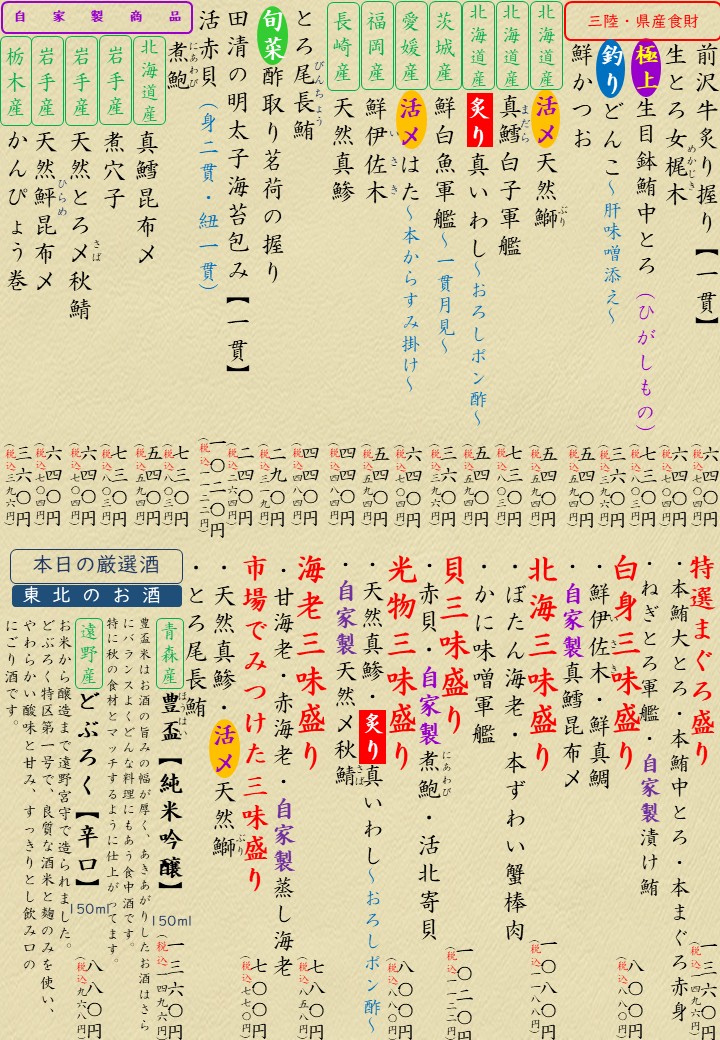 三陸・県産食財
前沢牛炙り握り【一貫】 六四〇円 (税込七〇四円)
生とろ女梶木 めかじき 六四〇円 (税込七〇四円)
極上 生目鉢鮪中とろ (ひがしもの) 七三〇円 (税込八〇三円)
釣り どんこ～肝味噌添え～ 三六〇円 (税込三九六円)
鮮かつお 五四〇円 (税込五九四円)
北海道産 活〆 天然鰤 ぶり 五四〇円 (税込五九四円)
北海道産 真鱈白子軍艦 まだら 七三〇円 (税込八〇三円)
北海道産 炙り 真いわし～おろしポン酢～ 五四〇円 (税込五九四円)
茨城産 鮮白魚軍艦～一貫月見～ 三六〇円 (税込三九六円)
愛媛産 活〆 はた～本からすみ掛け～ 六四〇円 (税込七〇四円)
福岡産 鮮伊佐木 いさき 五四〇円 (税込五九四円)
長崎産 天然真鯵 四四〇円 (税込四八四円)
とろ尾長鮪 びんちょう 四四〇円 (税込四八四円)
旬菜 酢取り茗荷の握り 二九〇円 (税込三一九円)
田清の明太子海苔包み【一貫】 二四〇円 (税込二六四円)
活赤貝 (身二貫・紐一貫) 一〇二〇円 (税込一一二二円)
自家製商品
煮鮑 にあわび 七三〇円 (税込八〇三円)
北海道産 真鱈昆布〆 五四〇円 (税込五九四円)
岩手産 煮穴子 七三〇円 (税込八〇三円)
岩手産 天然とろ〆秋鯖 さば 六四〇円 (税込七〇四円)
岩手産 天然鮃昆布〆 ひらめ 六四〇円 (税込七〇四円)
栃木産 かんぴょう巻 三六〇円 (税込三九六円)
特選まぐろ盛り 一三六〇円 (税込一四九六円)
・本鮪大とろ・本鮪中とろ・本まぐろ赤身
・ねぎとろ軍艦・自家製漬け鮪
白身三味盛り 八〇〇円 (税込八八〇円)
・鮮伊佐木・鮮真鯛 いさき
・自家製真鱈昆布〆
北海三味盛り 一〇八〇円 (税込一一八八円)
・ぼたん海老・本ずわい蟹棒肉
・かに味噌軍艦
貝三味盛り 一〇二〇円 (税込一一二二円)
・赤貝・自家製煮鮑・活北寄貝 にあわび
光物三味盛り 八〇〇円 (税込八八〇円)
・天然真鯵・炙り真いわし～おろしポン酢～
・自家製天然〆秋鯖 さば
海老三味盛り 七八〇円 (税込八五八円)
・甘海老・赤海老・自家製蒸し海老
市場でみつけた三味盛り 七〇〇円 (税込七七〇円)
・天然真鯵・活〆天然鰤 ぶり
・とろ尾長鮪
本日の厳選酒
東北のお酒
青森産 豊盃【純米吟醸】 ほうはい 150ml 一三六〇円 (税込一四九六円)
豊盃米はお酒の旨みの幅が厚く、あきあがりしたお酒はさら
にバランスよくどんな料理にもあう食中酒です。
特に秋の食材とマッチするように仕上がってます。
遠野産 どぶろく【辛口】 150ml 八八〇円 (税込九六八円)
お米から醸造まで遠野宮守で造られました。
どぶろく特区第一号で、良質な酒米と麹のみを使い、
やわらかい酸味と甘み、すっきりとし飲み口の
にごり酒です。